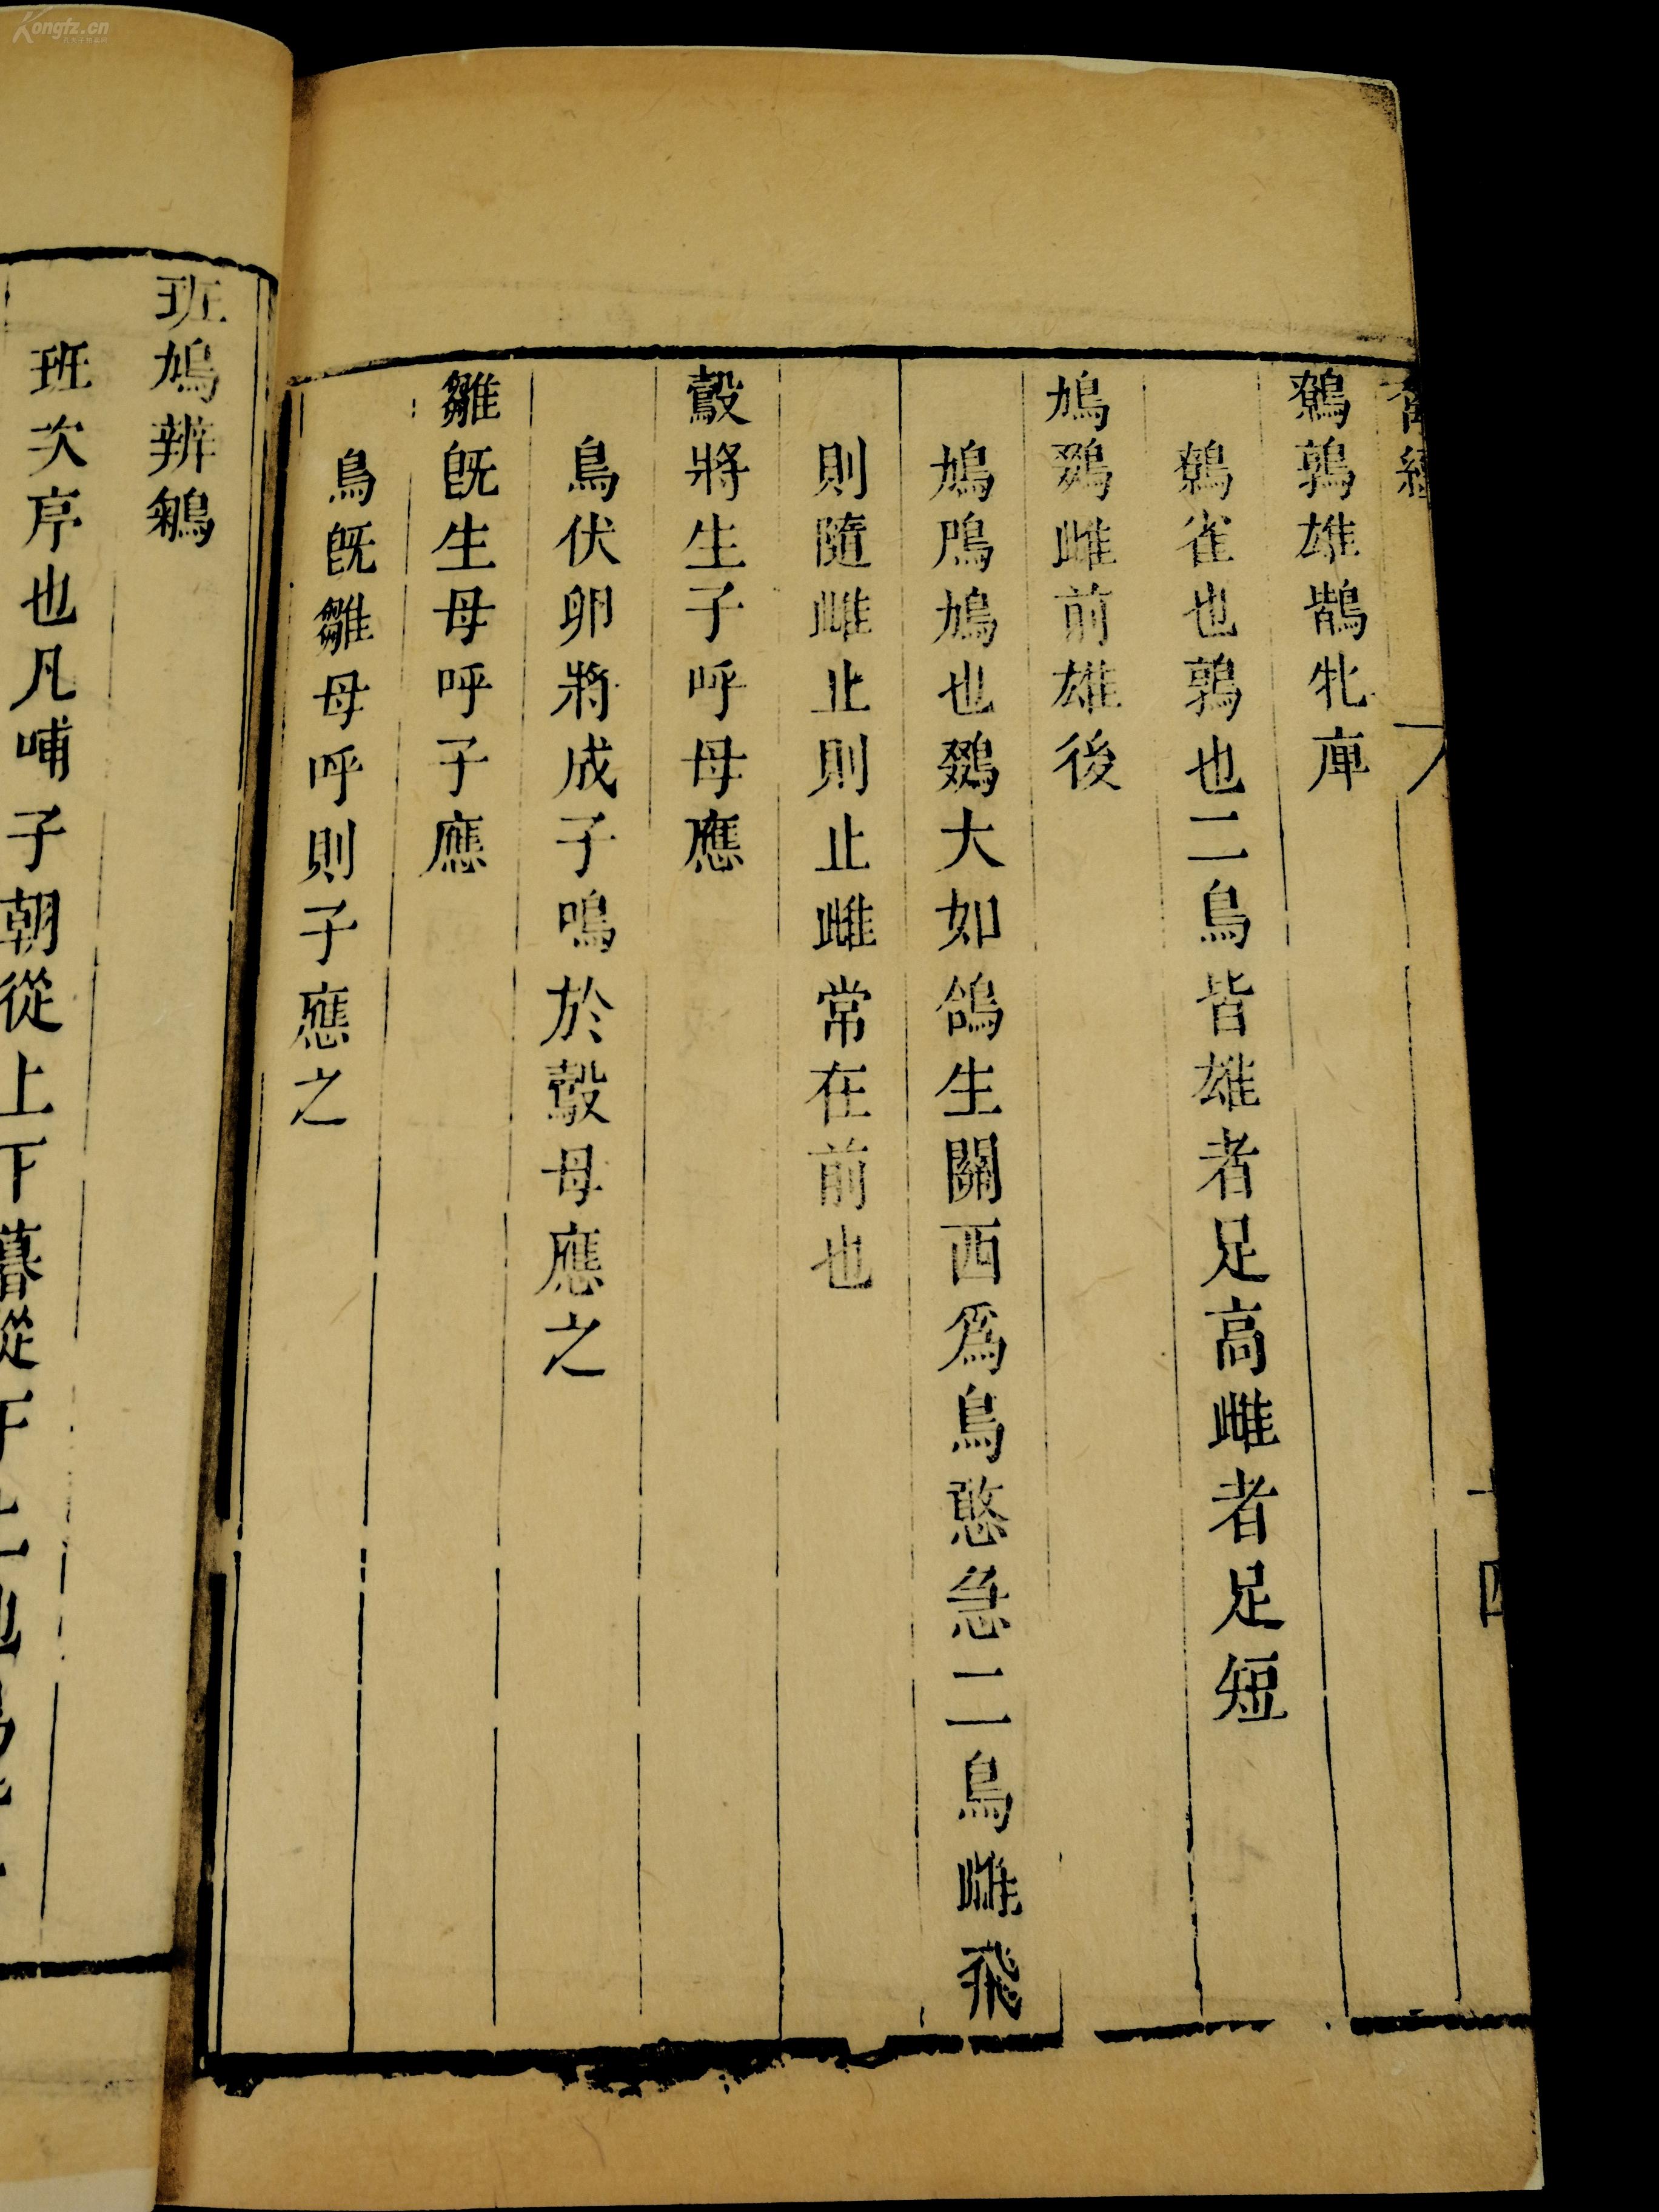 禽經
十四
鷯鶉雄鶛牝庳
鷯雀也鶉也二鳥皆雄者足高雌者足短
鳩鵽雌前雄後
鳩鳲鳩也鵽大如鴿生關西爲鳥憨急二鳥雌飛
則隨雌止則止雌常在前也
鷇將生子呼母應
鳥伏卵將成子鳴於鷇母應之
雛旣生母呼子應
鳥旣雛母呼則子應之
班鳩辨鵴
班次序也凡哺子朝從上下暮從下上也
Kongfz.cn